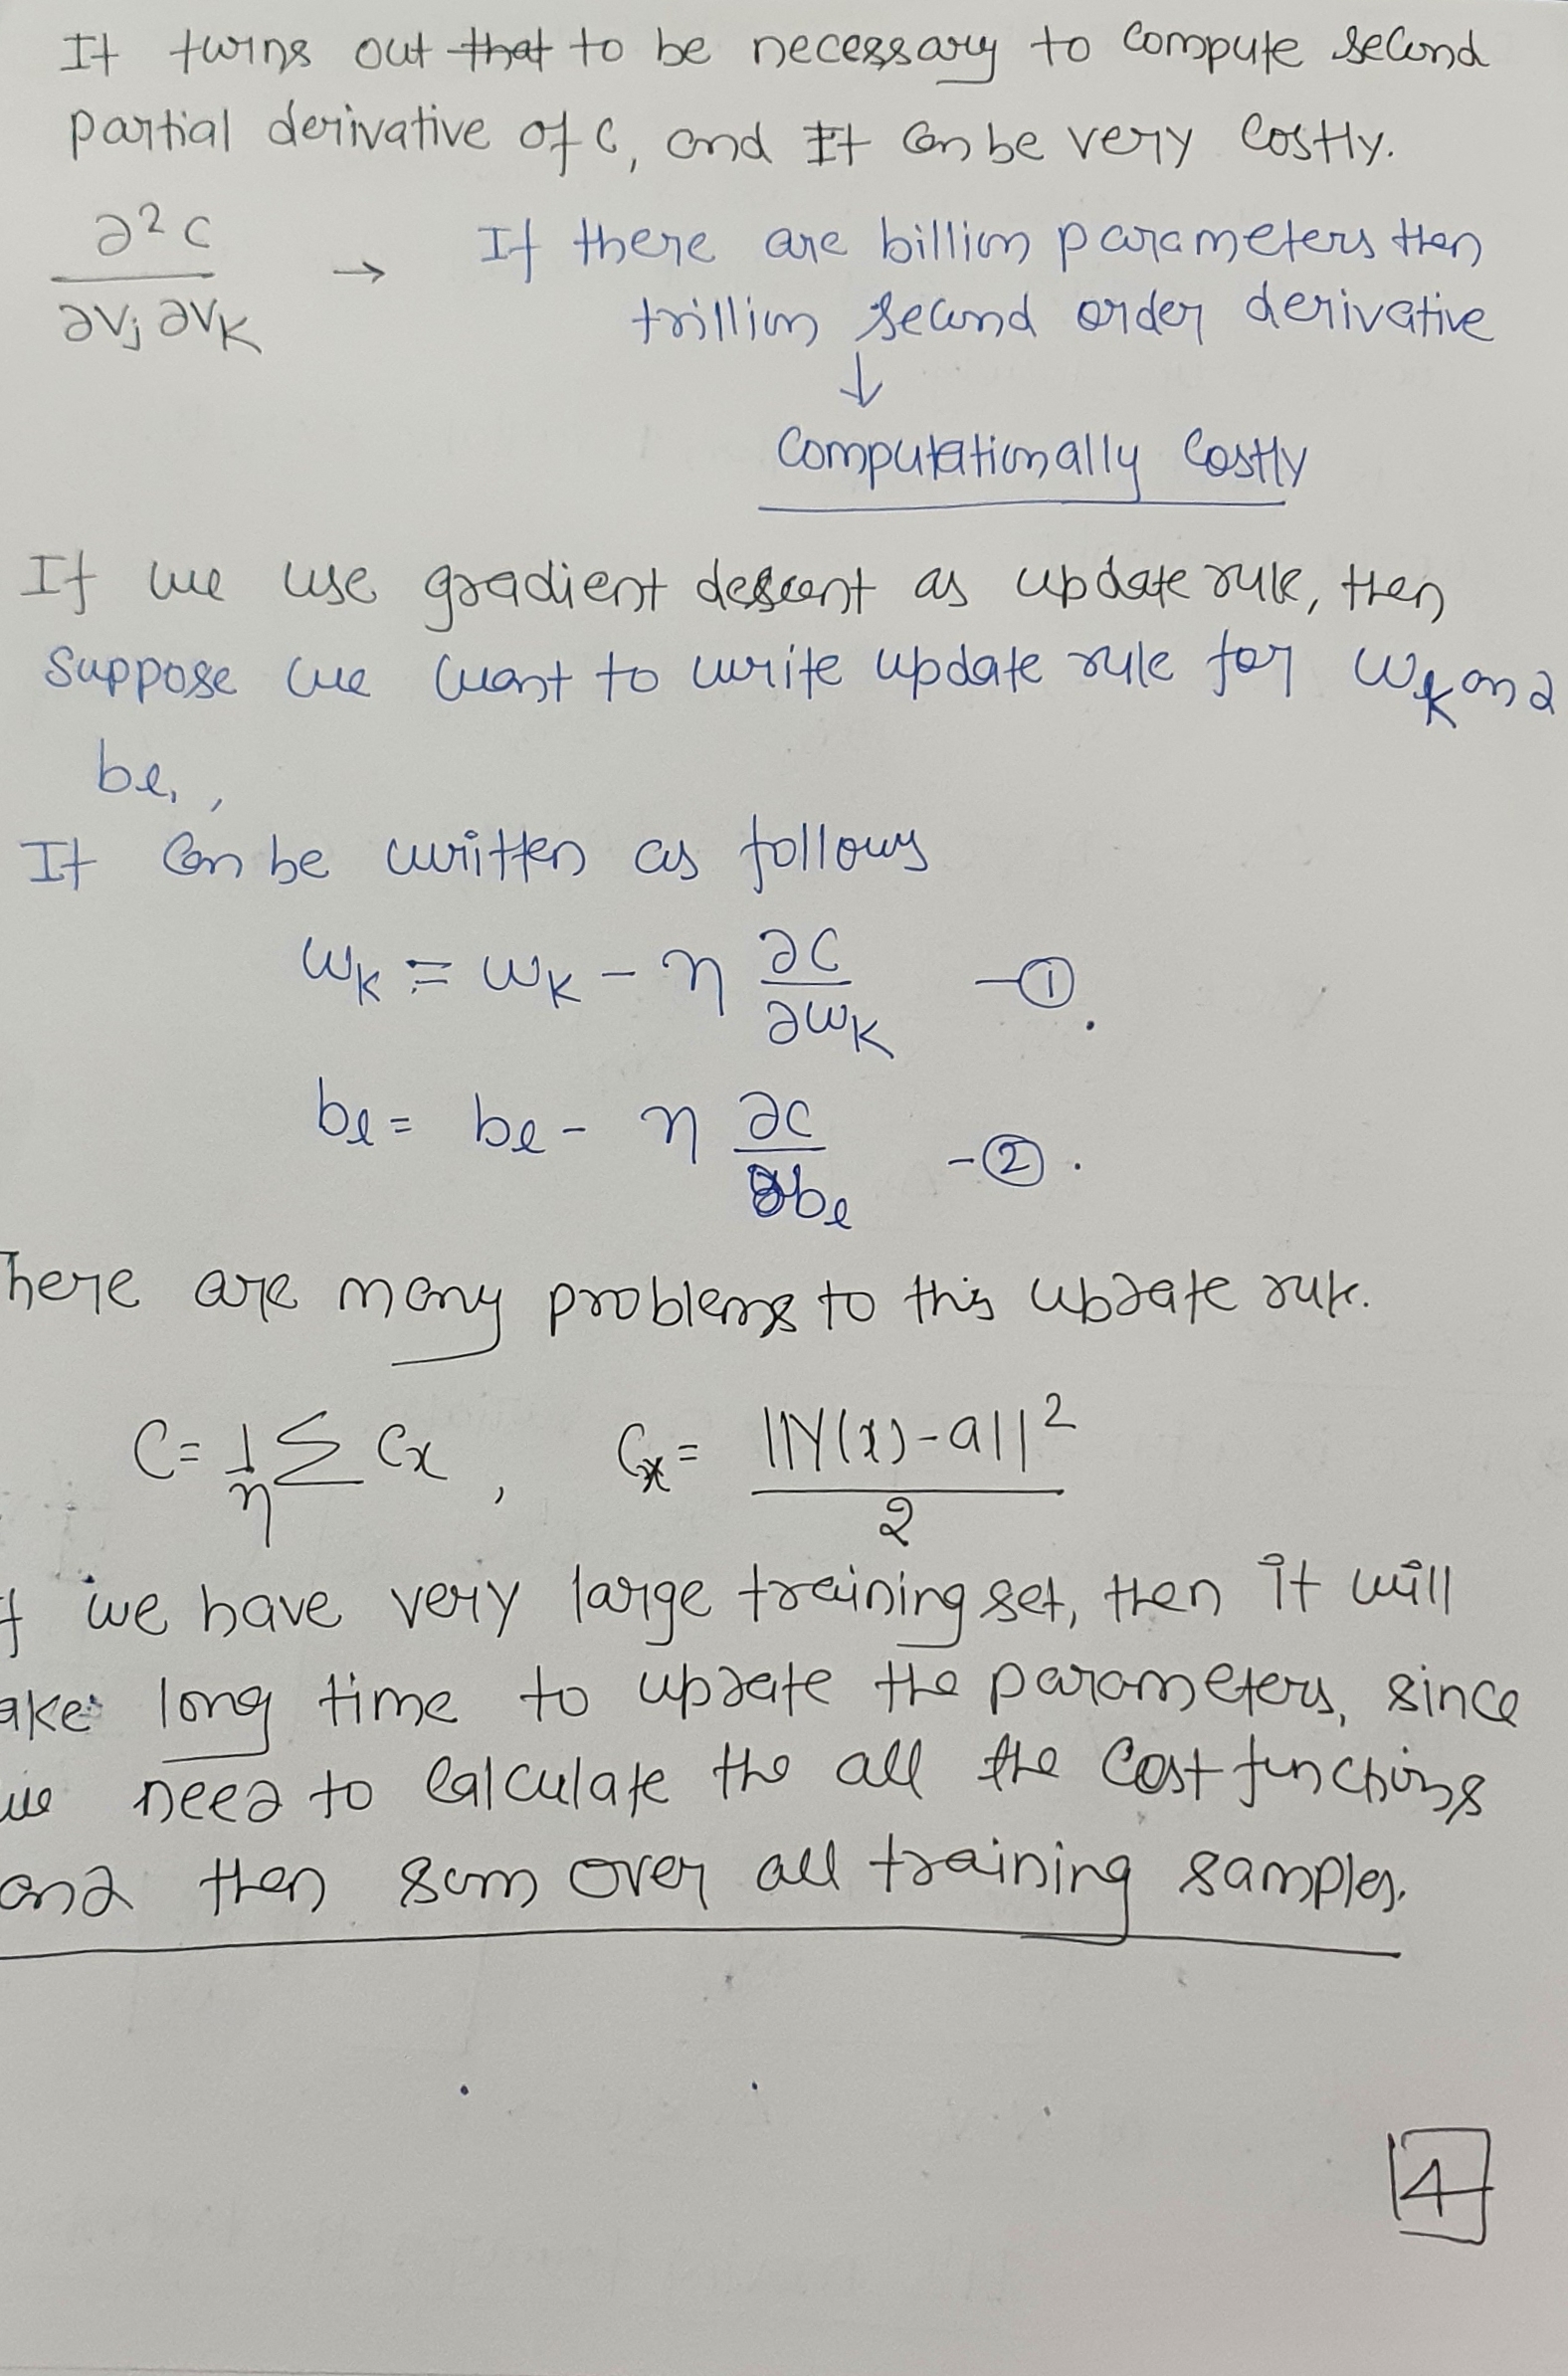 It turns out that to be necessary to compute second
partial derivative of C, and It can be very costly.
∂²C / ∂Vj ∂VK → If there are billion parameters then
trillion second order derivative
↓
Computationally Costly
If we use gradient descent as update rule, then
Suppose we want to write update rule for Wk and
bℓ,
It can be written as follows
WK := WK - η ∂C/∂WK -①.
bℓ = bℓ - η ∂C/∂bℓ -②.
here are many problems to this update rule.
C = 1/n Σ Cx , Cx = ||Y(x)-a||² / 2
f we have very large training set, then it will
ake long time to update the parameters, since
we need to calculate the all the cost functions
and then sum over all training samples.
4